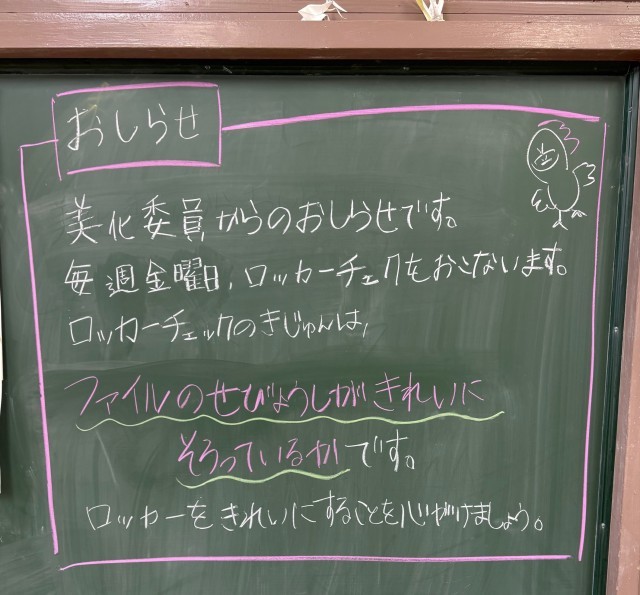 おしらせ
美化委員からのおしらせです。
毎週金曜日,ロッカーチェックをおこないます。
ロッカーチェックのきじゅんは,
ファイルのせびょうしがきれいに
そろっているかです。
ロッカーをきれいにすることを心がけましょう。